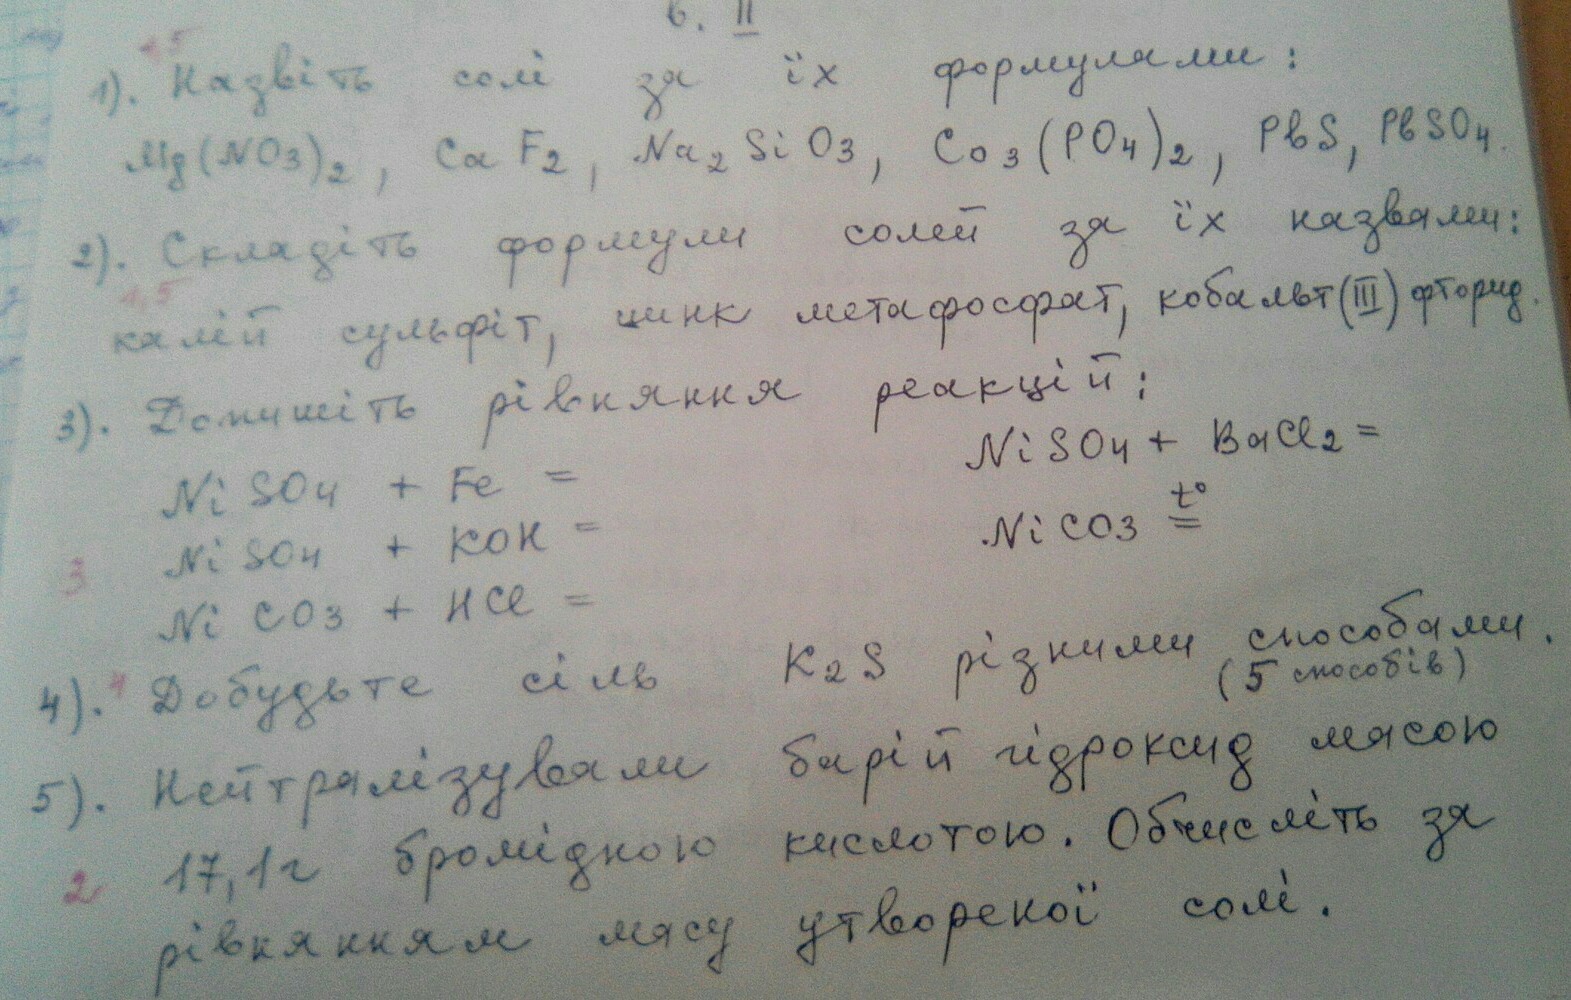 в. II
1,5
1). Назвіть солі за їх формулами:
Mg(NO3)2, CaF2, Na2SiO3, Co3(PO4)2, PbS, PbSO4.
2). Складіть формули солей за їх назвами:
1,5
калій сульфіт, цинк метафосфат, кобальт(III) фторид.
3). Допишіть рівняння реакцій:
NiSO4 + Fe =
NiSO4 + BaCl2 =
3 NiSO4 + KOH =
NiCO3 t° =
NiCO3 + HCl =
4). 4 Добудьте сіль K2S різними способами.
(5 способів)
5). Нейтралізували барій гідроксид масою
2 17,1г бромідною кислотою. Обчисліть за
рівнянням масу утвореної солі.